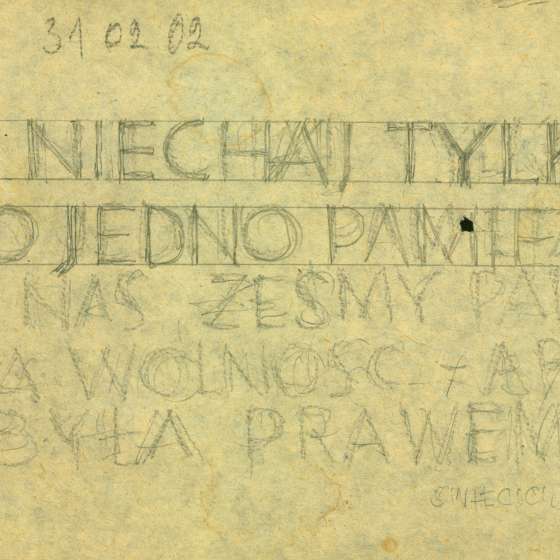 31 02 02
NIECHAJ TYLK
O JEDNO PAMIĘ
NAS ŻEŚMY PA
A WOLNOŚĆ
BYŁA PRAWEM